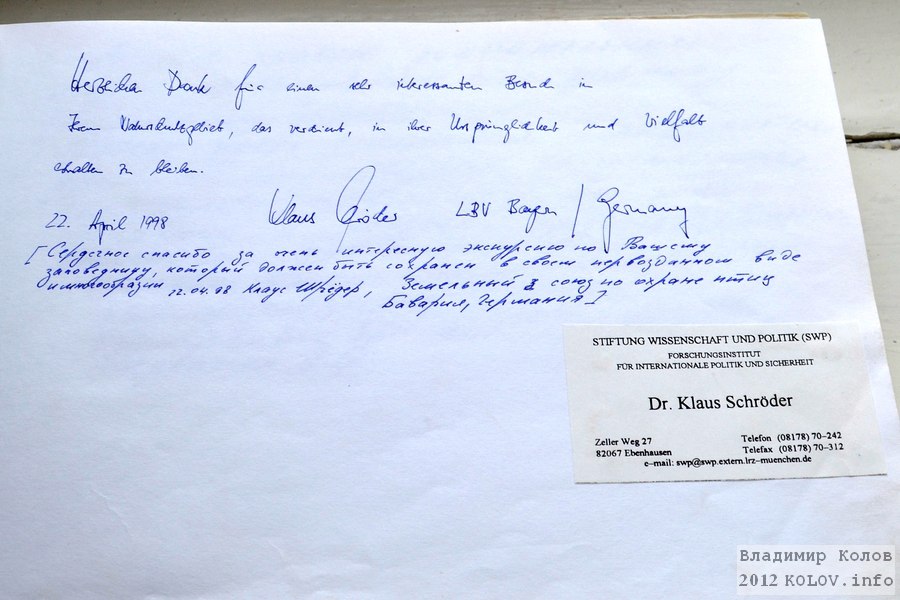 Herzlichen Dank für einen sehr interessanten Besuch in
Ihrem Naturschutzgebiet, das verdient, in ihrer Ursprünglichkeit und Vielfalt
erhalten zu bleiben.
22. April 1998 Klaus Schröder LBV Bayern / Germany
[Сердечное спасибо за очень интересную экскурсию по Вашему
заповеднику, который должен быть сохранен в своем первозданном виде
и многообразии 22.04.98 Клаус Шрёдер, Земельный союз по охране птиц
Бавария, Германия]
STIFTUNG WISSENSCHAFT UND POLITIK (SWP)
FORSCHUNGSINSTITUT
FÜR INTERNATIONALE POLITIK UND SICHERHEIT
Dr. Klaus Schröder
Zeller Weg 27 Telefon (08178) 70-242
82067 Ebenhausen Telefax (08178) 70-312
e-mail: swp@swp.extern.lrz-muenchen.de
Владимир Колов
2012 KOLOV.info